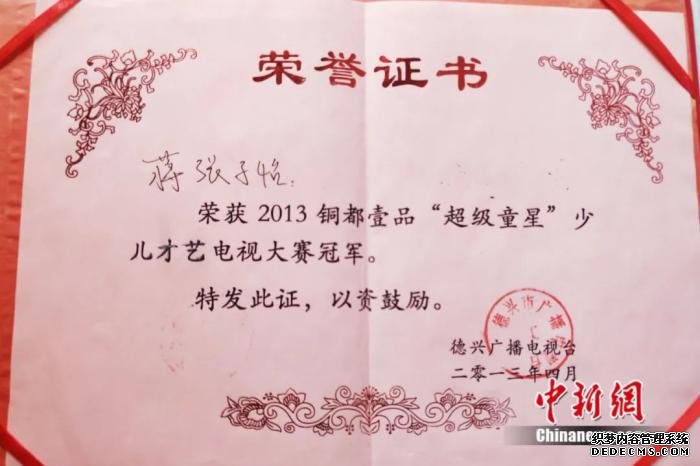 荣誉证书
蒋张子怡：
荣获 2013 铜都壹品“超级童星”少
儿才艺电视大赛冠军。
特发此证，以资鼓励。
德兴市广播
德兴广播电视台
二零一三年四月
中新網
Chinanew
织梦内容管理系统
DEDECMS.COM